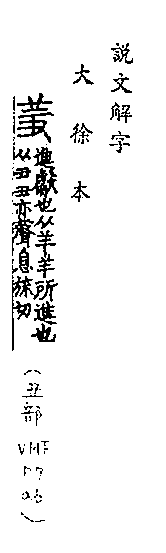 説文解字
大徐本
進獻也从羊羊所進也
从丑丑亦聲息流切
(丑部